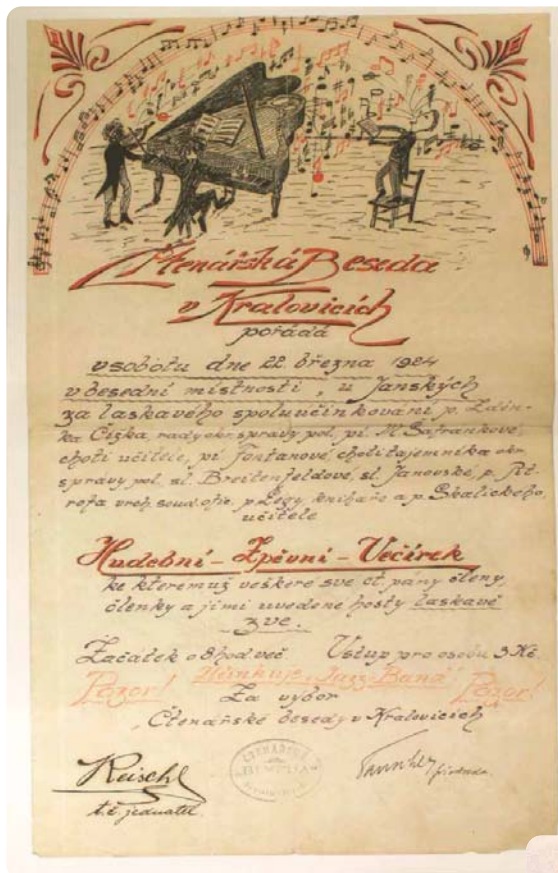 Čtenářská Beseda
v Kralovicích
pořádá
v sobotu dne 22. března 1924
v besední místnosti „u Janských
za laskavého spoluúčinkování p. Zdeň-
ka Čížka, rady okr. správy pol. pí. M. Šafránkové,
choti učitele, pí Fontanové choti tajemníka okr.
správy pol. sl. Breitenfeldové, sl. Janovské, p. Pit-
rofa vrch. soud. ofic. p. Legy, knihaře a p. Skalického,
učitele
Hudební – Zpěvní – Večírek
ke kteremuž veškeré své ct. pány členy,
členky a jimi uvedené hosty laskavě
zve.
Začátek o 8 hod več. Vstup pro osobu 3 Kč.
Pozor! Účinkuje „Jazz-Band" Pozor!
Za výbor
„Čtenářské besedy v Kralovicích
Reischl
t.č. jednatel